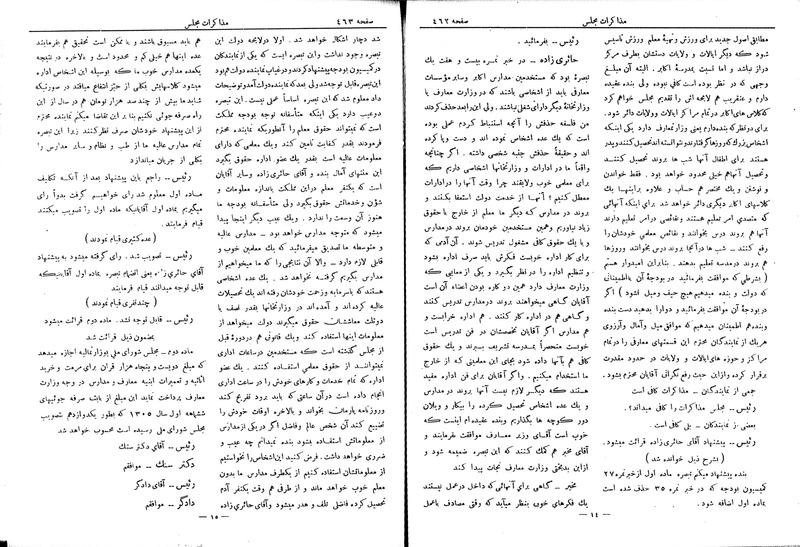 صفحه ۴۶۲ مذاکرات مجلس
مطابق اصول جدید برای ورزش و تهیهٔ معلم ورزش تأسیس
شود که دیگر ایالات و ولایات دستشان بطرف مرکز
دراز نباشد و اما نسبت بمدرسهٔ اکابر. البته آن مبلغ
وجهی که در نظر بوده است کافی نبوده ولی بنده عقیده
دارم و عنقریب هم لایحه اش را تقدیم مجلس خواهم کرد
که کلاس های اکابر در تمام مراکز ایالات و ولایات دائر شود.
برای دو نظر که بنده دارم یعنی وزارت معارف دارد یکی اینکه
اشخاص بزرگ که روزها گرفتارند و نتوانسته اند تحصیل کنند و پدر
هستند برای اطفال آنها شب ها بروند تحصیل کنند
و تحصیل آنها هم خیلی محدود خواهد بود. فقط خواندن
و نوشتن و یک مختصر هم حساب و علاوه براینها یک
کلاسهای اکابر دیگری دائر خواهد شد برای اینکه آنهائی
که متصدی امر تعلیم هستند و نقائصی در امر تعلیم دارند
آنها هم بروند درس بخوانند و نقائص معلمی خودشان را
رفع کنند – شب ها در آنجا بروند درس بخوانند و روزها
هم بروند در مدرسه تعلیم بدهند. بنابراین امیدوار هستم
( بشرطی که موافقت بفرمائید در بودجهٔ آن با اطمینانی
که دولت و بنده میدهیم هیچ حیف ومیل نشود ) اگر
در بودجهٔ آن موافقت بفرمائید و دو او را بدهید دست بنده
وبنده هم اطمینان میدهیم که موافق میل و آمال و آرزوی
هریک از نمایندگان محترم این قسمتهای معارف را در تمام
مراکز و حوزه های ایالات و ولایات در حدود مقدرت
برقرار کرده و از این حیث رفع نگرانی آقایان محترم بشود.
جمعی از نمایندگان – مذاکرات کافی است
رئیس – مجلس مذاکرات را کافی میداند؟.
بعضی از نمایندگان – بلی کافی است.
رئیس – پیشنهاد آقای حائری زاده قرائت میشود.
( بشرح ذیل خوانده شد )
بنده پیشنهاد میکنم تبصره ماده اول از خبر نمره ۲۷
کمیسیون بودجه که در خبر نمره ۳۵ حذف شده است
بماده اول اضافه شود.
رئیس – بفرمائید.
حائری زاده – در خبر نمره بیست و هفت یک
تبصرهٔ بود که مستخدمین مدارس اکابر و سایر مؤسسات
معارف باید از اشخاصی باشند که در وزارت معارف یا
وزارتخانهٔ دیگر دارای شغلی نباشند. ولی این را بعد حذف کردند
من فلسفه حذفش را آنچه استنباط کردم عملی بوده
است که یک عده اشخاصی نموده اند و دست و پا کرده
اند و حقیقةً حذفش جنبه شخصی داشته. اگر چنانچه
واقعاً ما در ادارات و وزارتخانها اشخاصی داریم که
برای معلمی خوب ولایقند چرا وقت آنها را در ادارات
معطل کنیم؟ آنها از خدمت دولت استعفا بکنند و
بروند در مدارس که دیگر ما معلم از خارج با حقوق
زیاد نیاوریم و همین مستخدمین خودمان بروند در مدارس
و با یک حقوق کافی مشغول تدریس شوند. آن آدمی که
برای کار اداره خوبست فکرش باید صرف اداره بشود
و تنظیم اداره را در نظر بگیرد و یکی از معایبی که
وزارت معارف دارد همین دو کاره بودن اعضاء آن است
آقایان گاهی میخواهند بروند در مدارس تدریس کنند
وگاهی هم در اداره کار کنند. هم اداره خرابست و
هم مدارس اگر آقایان تخصصتان در فن تدریس است
خوبست منحصراً بمدرسه تشریف ببرند و یک حقوق
کافی هم بآنها داده شود بجای این معلمینی که از خارج
ما استخدام میکنیم. و اگر آقایان برای فن اداره مفید
هستند که دیگر لازم نیست آنها بروند در مدارس
و یک عده اشخاص تحصیل کرده را بیکار و ویلان
دور کوچه ها بگذاریم وبنده عقیده ام اینست که
خوب است آقای وزیر معارف موافقت بفرمایند و
آقای مخبر هم کمک کنند که این تبصره ضمیمه شود و
از این بدبختی وزارت معارف نجات پیدا کند
مخبر – گاهی برای آنهائی که داخل در عمل نیستند
یک فکرهای خوبی بنظر میآید که وقتی مصادف با عمل
– ۱۴ –
صفحه ۴۶۳ مذاکرات مجلس
شد دچار اشکال خواهد شد. اولا در لایحه دولت این
تبصره وجود نداشت واین تبصره است که یکی از نمایندگان
در کمیسیون بودجه پیشنهاد کردند و در غیاب نماینده دولت هم بود
این تبصره قابل توجه شد ولی بعد که نماینده دولت آمد و توضیحات
داد معلوم شد که این تبصره اساساً عملی نیست. این تبصره
دو عیب دارد یکی اینکه متأسفانه توجه بودجه مملکت
است که نمیتواند حقوق معلم را آنطوریکه نماینده محترم
فرمودند بقدر کفایت تأمین کند و یک معلمی که دارای
معلومات عالیه است بقدر یک عضو اداره حقوق بگیرد
این منتهای آمال بنده و آقای حائری زاده و سایر آقایان
است که یکنفر معلم در این مملکت باندازه معلومات و
شؤن و خدماتش حقوق بگیرد ولی متأسفانه بودجه ما
هنوز آن وسعت را ندارد. و یک عیب دیگر اینجا پیدا
میشود که متوجه مدارس خواهد بود – مدارس عالیه
و متوسطه ما تصدیق میفرمائید که یک معلمین خوب و
قابل لازم دارد – والا آن نتایجی را که ما میخواهیم از
مدارس بگیریم گرفته نخواهد شد. یک عده اشخاصی
هستند که با سرمایه و زحمت خودشان رفته اند یک تحصیلات
عالیه کرده اند و آمده اند در وزارتخانها بقدر نصف یا
دو ثلث معاششان حقوق میگیرند دولت میخواهد از
معلومات اینها استفاده کند و یک قانونی هم در دورهٔ قبل
از مجلس گذشته است که مستخدمین در ساعات اداری
نمیتوانند از حقوق معلمی استفاده کنند. یک عضو
اداره که تمام خدمات و کارهای خودش را در ساعت اداری
انجام داده است در آن ساعتی که باید برود تفریح کند
و روزنامه یا رمان بخواند و بالاخره اوقات خودش را
تضییع کند آن شخص عالم و فاضل اگر در یکی از مدارس
از معلوماتش استفاده بشود بنده نمیدانم چه عیب و
ضرری خواهد داشت. فرض کنید این اشخاص را نخواستیم
از معلوماتشان استفاده کنیم از یکطرف مدارس ما بدون
معلم خوب خواهد ماند و از طرفی هم وقت یکنفر آدم
تحصیل کرده فاضلی تلف و هدر میشود و آقای حائری زاده
هم باید مسبوق باشند و یا ممکن است تحقیق هم بفرمایند
عده اینها هم خیلی کم و محدود است و بالاخره در نتیجه
یکعده مدارس خوب ما که بوسیله این اشخاص اداره
میشود کلاسهایش از حیّز انتفاع میافتد در صورتیکه
شاید ما بیش از چند صد هزار تومان هم در سال از این
راه صرفه جوئی نکنیم بنا بر این تقاضا میکنم نماینده محترم
از این پیشنهاد خودشان صرف نظر کنند زیرا این تبصره
تمام مدارس عالیه ما از طب و نظام و سایر مدارس را
بکلی از جریان میاندازد
رئیس – راجع باین پیشنهاد بعد از آنکه تکلیف
ماده اول معلوم شد رأی خواهیم گرفت بدواً رأی
میگیریم بماده اول آقایانیکه ماده اول را تصویب میکنند
قیام فرمایند
( عده کثیری قیام نمودند )
رئیس – تصویب شد. رأی گرفته میشود به پیشنهاد
آقای حائری زاده یعنی انضمام تبصره بماده اول آقایانیکه
قابل توجه میدانند قیام فرمایند
( چند نفری قیام نمودند )
رئیس – قابل توجه نشد. ماده دوم قرائت میشود
بمضمون ذیل قرائت شد
ماده دوم – مجلس شورای ملی بوزارت مالیه اجازه میدهد
که مبلغ دویست و پنجاه هزار قران برای مرمت و خرید
اثاثیه و تعمیرات ابنیه معارف و مدارس در وجه وزارت
معارف پرداخت نماید این مبلغ از بابت صرفه جوئیهای
ششماهه اول سال ۱۳۰۵ که بطور یکدوازدهم بتصویب
مجلس شورای ملی رسیده است محسوب خواهد شد
رئیس – آقای دکتر سنگ –
دکتر سنگ – موافقم
رئیس – آقای دادگر
دادگر – موافقم
– ۱۵ –